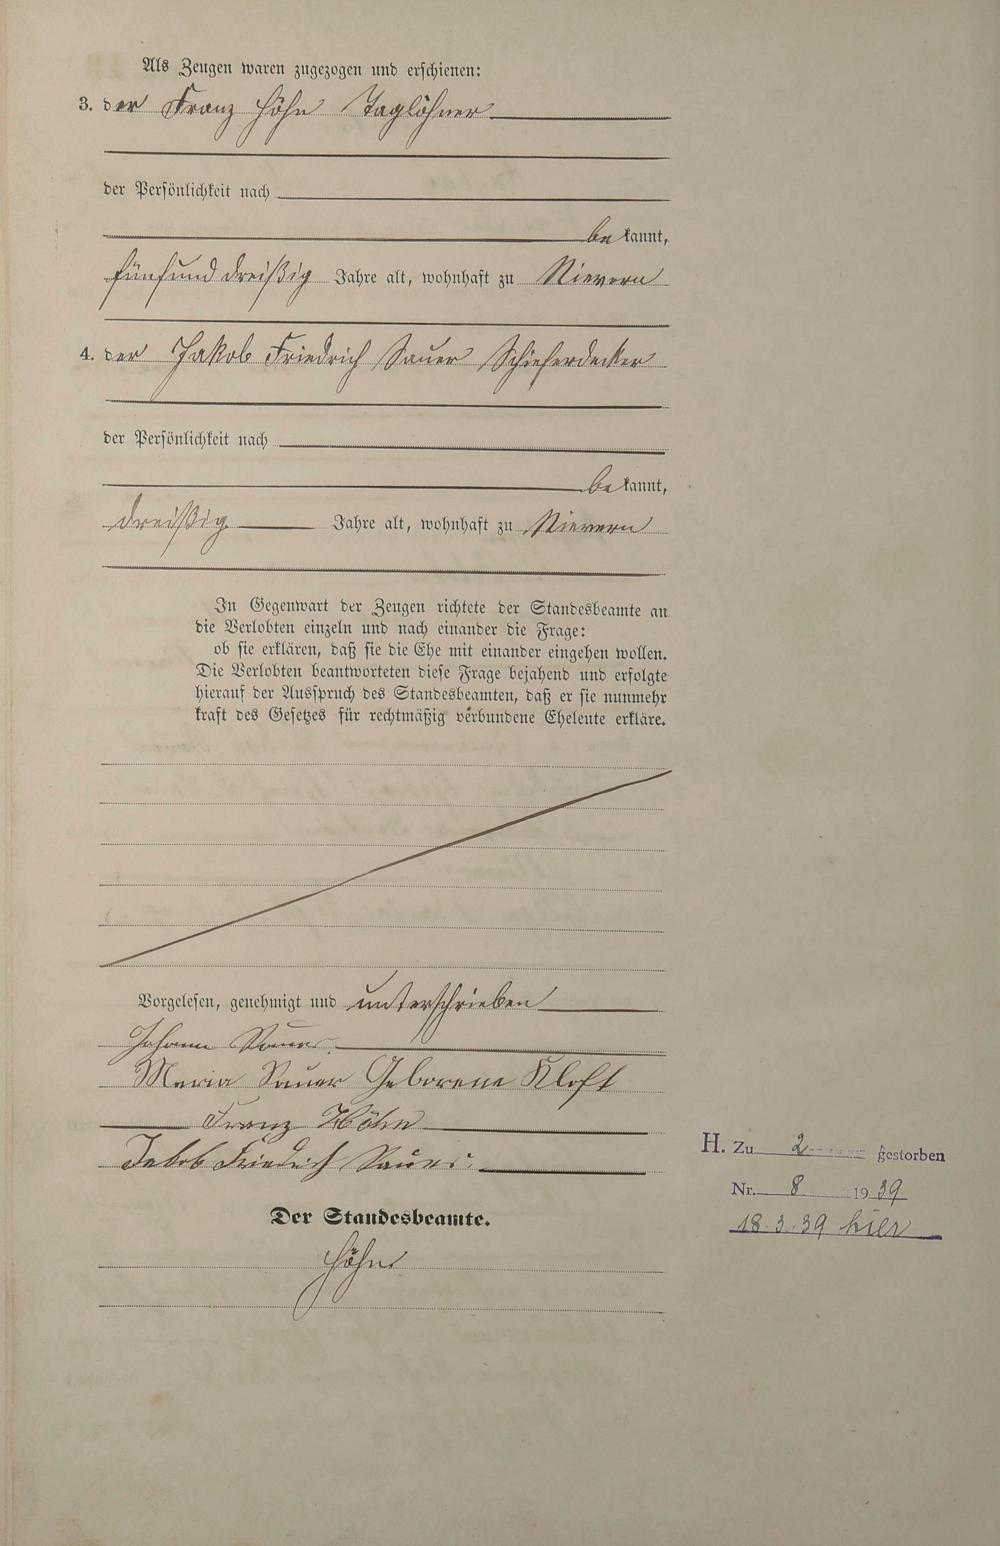 Als Zeugen waren zugezogen und erschienen:
3. der Franz Höhn Taglöhner
der Persönlichkeit nach
be kannt,
fünfunddreißig Jahre alt, wohnhaft zu Nievern
4. der Jakob Friedrich Sauer Schieferdecker
der Persönlichkeit nach
be kannt,
dreißig Jahre alt, wohnhaft zu Nievern
In Gegenwart der Zeugen richtete der Standesbeamte an
die Verlobten einzeln und nach einander die Frage:
ob sie erklären, daß sie die Ehe mit einander eingehen wollen.
Die Verlobten beantworteten diese Frage bejahend und erfolgte
hierauf der Ausspruch des Standesbeamten, daß er sie nunmehr
kraft des Gesetzes für rechtmäßig verbundene Eheleute erkläre.
Vorgelesen, genehmigt und unterschrieben
Johann Sauer.
Maria Sauer Geborene Kloft
Franz Höhn
Jakob Friedrich Sauer.
H. Zu 2 gestorben
Nr. 8 1939
18.3.39 hier
Der Standesbeamte.
Höhn